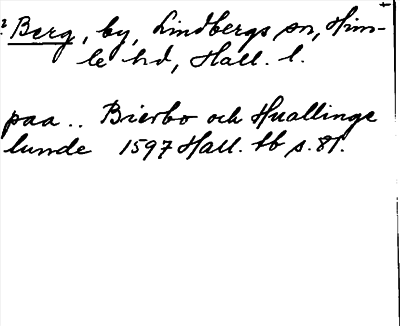 ? Berg, by, Lindbergs sn, Him-
le hd, Hall. l.
paa .. Bierbo och Huallinge
lunde 1597 Hall. tb s. 81.